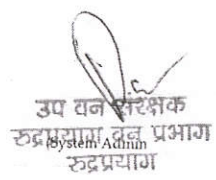 उप वन संरक्षक
रुद्रप्रयाग वन प्रभाग
(System Admin
रुद्रप्रयाग